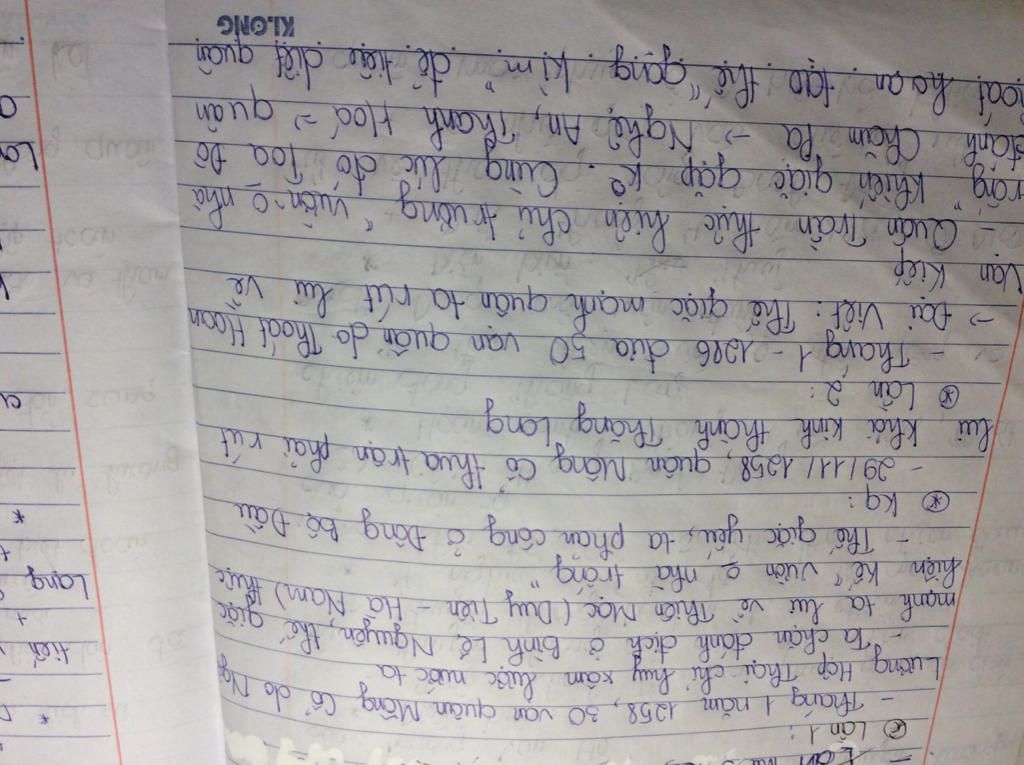 * Lần 1:
- Tháng 1 năm 1258, 30 vạn quân Mông Cổ do
Lương Hợp Thai chỉ huy xâm lược nước ta
- Ta chặn đánh địch ở Bình Lệ Nguyên, thế giặc
mạnh ta lui về Thiên Mạc (Duy Tiên - Hà Nam) thực
hiện kế "vườn o nhà trống"
- Thế giặc yếu, ta phản công ở Đông bộ Đầu
* Kq:
- 29/111/1258, quân Mông Cổ thua trận phải rút
lui khỏi kinh thành Thăng Long
* Lần 2:
- Tháng 1 - 1286 đưa 50 vạn quân do Thoát Hoan
-> Đại Việt: Thế giặc mạnh quân ta rút lui về
Vạn Kiếp
- Quân Trần thực hiện chủ trương "vườn o nhà
trống" khiến giặc gặp k°. Cùng lúc đó Toa Đô
đánh Chăm Pa -> Nghệ An, Thanh Hoá -> quân
Thoát hoan tạo thế "gọng kìm" để tiêu diệt quân
KLONG
Lang